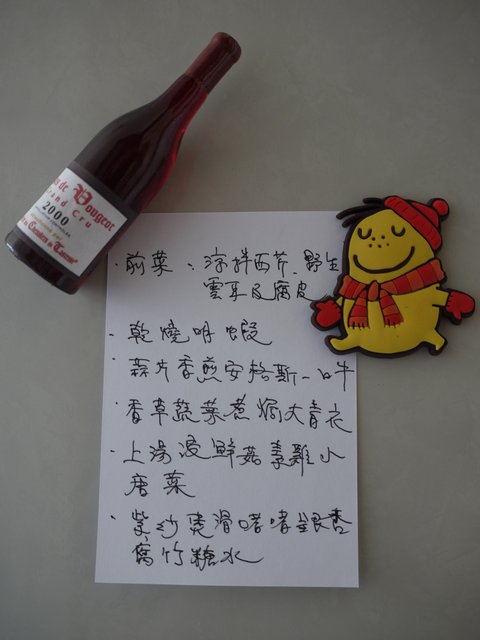 Vougeot
Grand Cru
2000
·前菜:涼拌西芹、野生
雲耳及腐皮
·乾燒明蝦
·蒜片香煎安格斯一口牛
·香草蔬菜蔥焗大青衣
·上湯浸鮮菇素雞小
唐菜
·紫砂煲滑啫啫銀杏
腐竹糖水